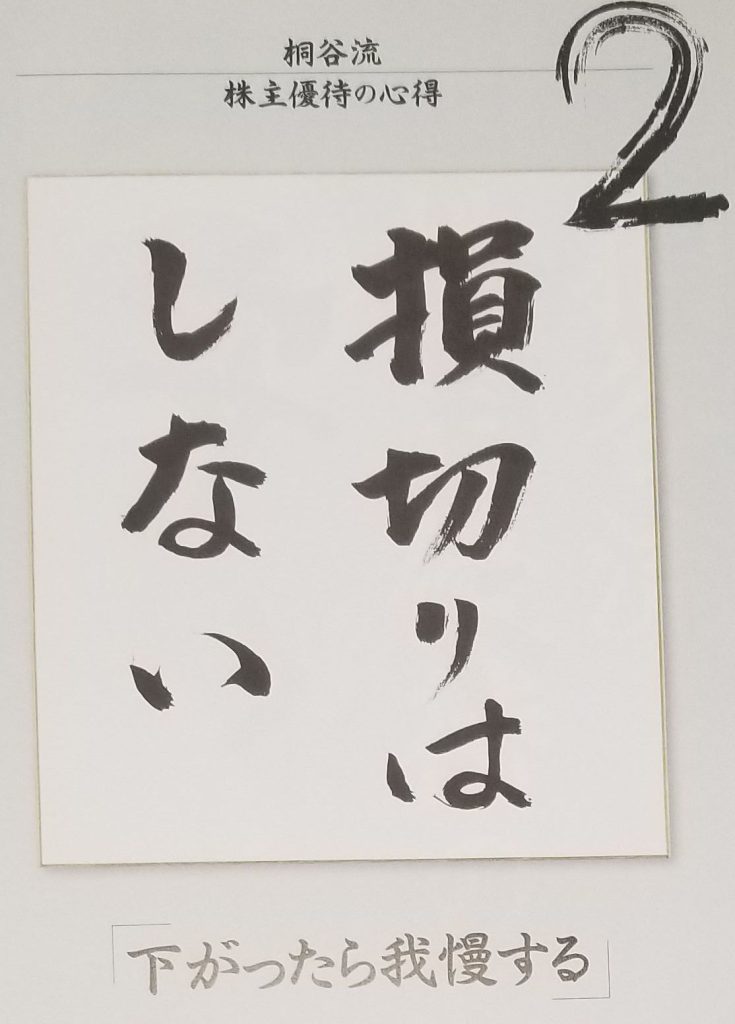 桐谷流
株主優待の心得
2
損切りは
しない
「下がったら我慢する」